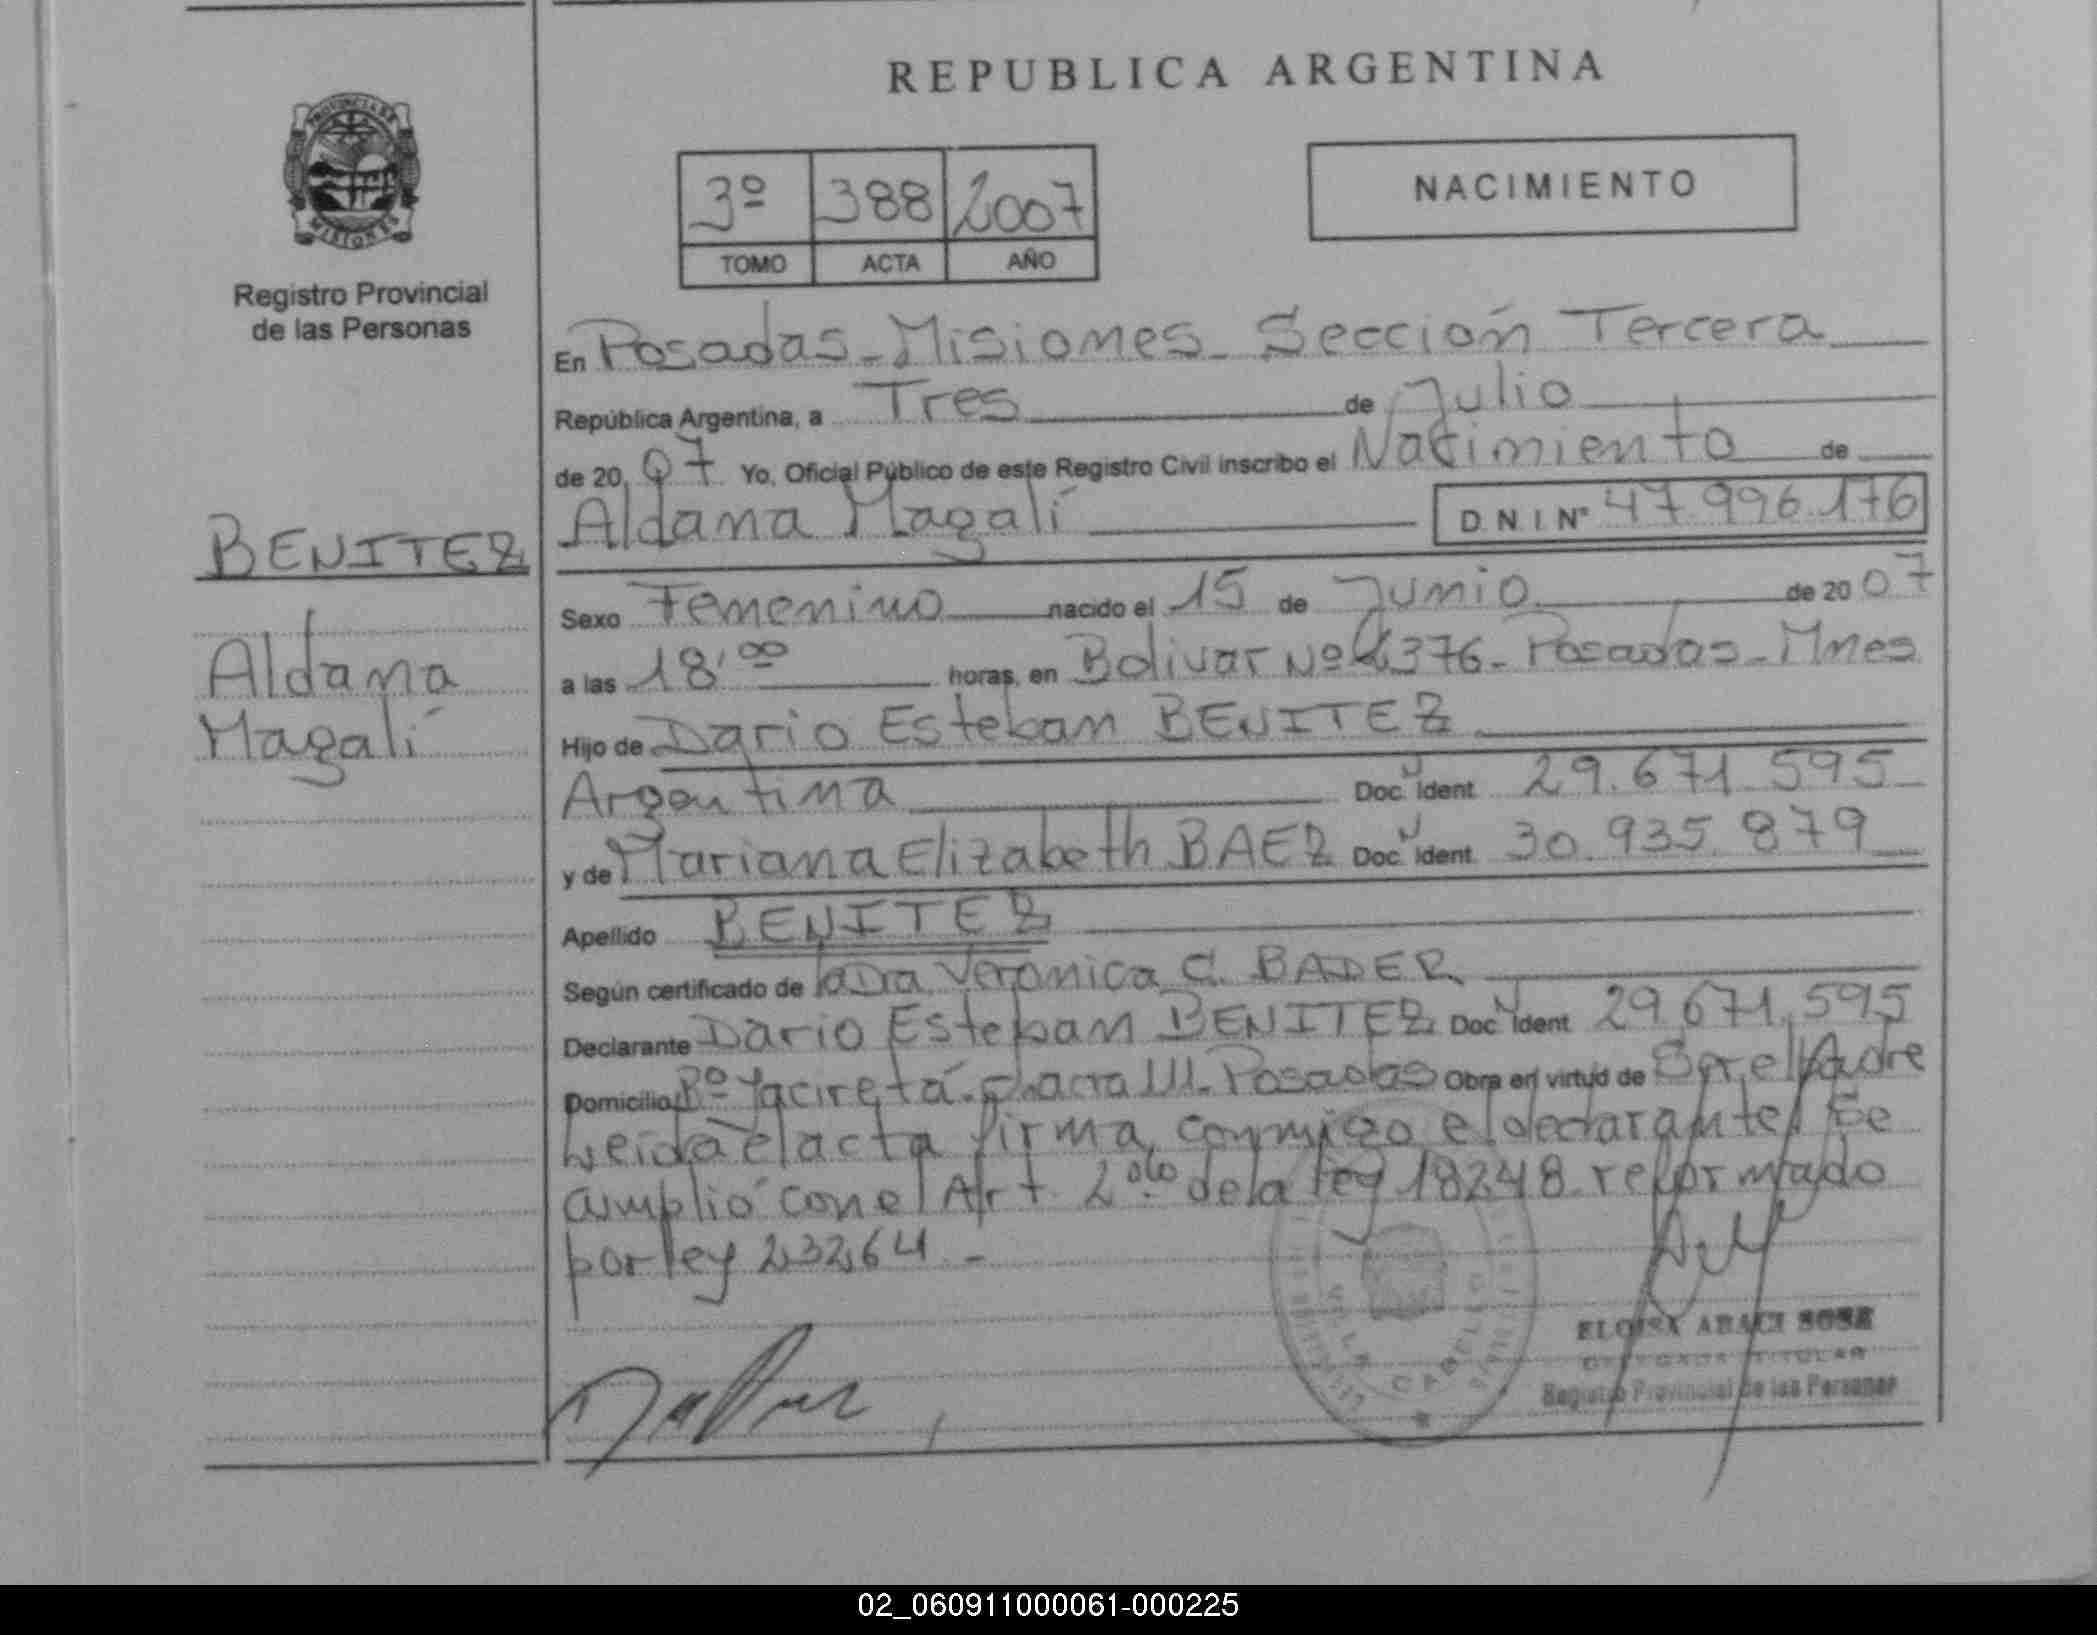 REPUBLICA ARGENTINA
PROVINCIA DE
MISIONES
Registro Provincial
de las Personas
3º 388 2007
TOMO ACTA AÑO
NACIMIENTO
BENITEZ
Aldana
Magalí
En Posadas - Misiones - Sección Tercera
República Argentina, a Tres de Julio
de 20 07 Yo, Oficial Público de este Registro Civil inscribo el Nacimiento de
Aldana Magalí D N I Nº 47.996.176
Sexo Femenino nacido el 15 de Junio de 20 07
a las 18,00 horas, en Bolivar Nº 2376 - Posadas - Mnes
Hijo de Dario Esteban BENITEZ
Argentina Doc. Ident. 29.671.595
y de Mariana Elizabeth BAEZ Doc. Ident. 30.935.879
Apellido BENITEZ
Según certificado de la Dra Veronica C. BADER
Declarante Dario Esteban BENITEZ Doc. Ident. 29.671.595
Domicilio Bº Yacireta - Chacra Posadas Obra en virtud de Ser el Padre
Leida el acta firma conmigo el declarante Se
cumplió con el Art. 2do de la ley 18248 reformado
por ley 23264 -
ELOISA ARACI SOSA
DELEGADA TITULAR
Registro Provincial de las Personas
02_060911000061-000225